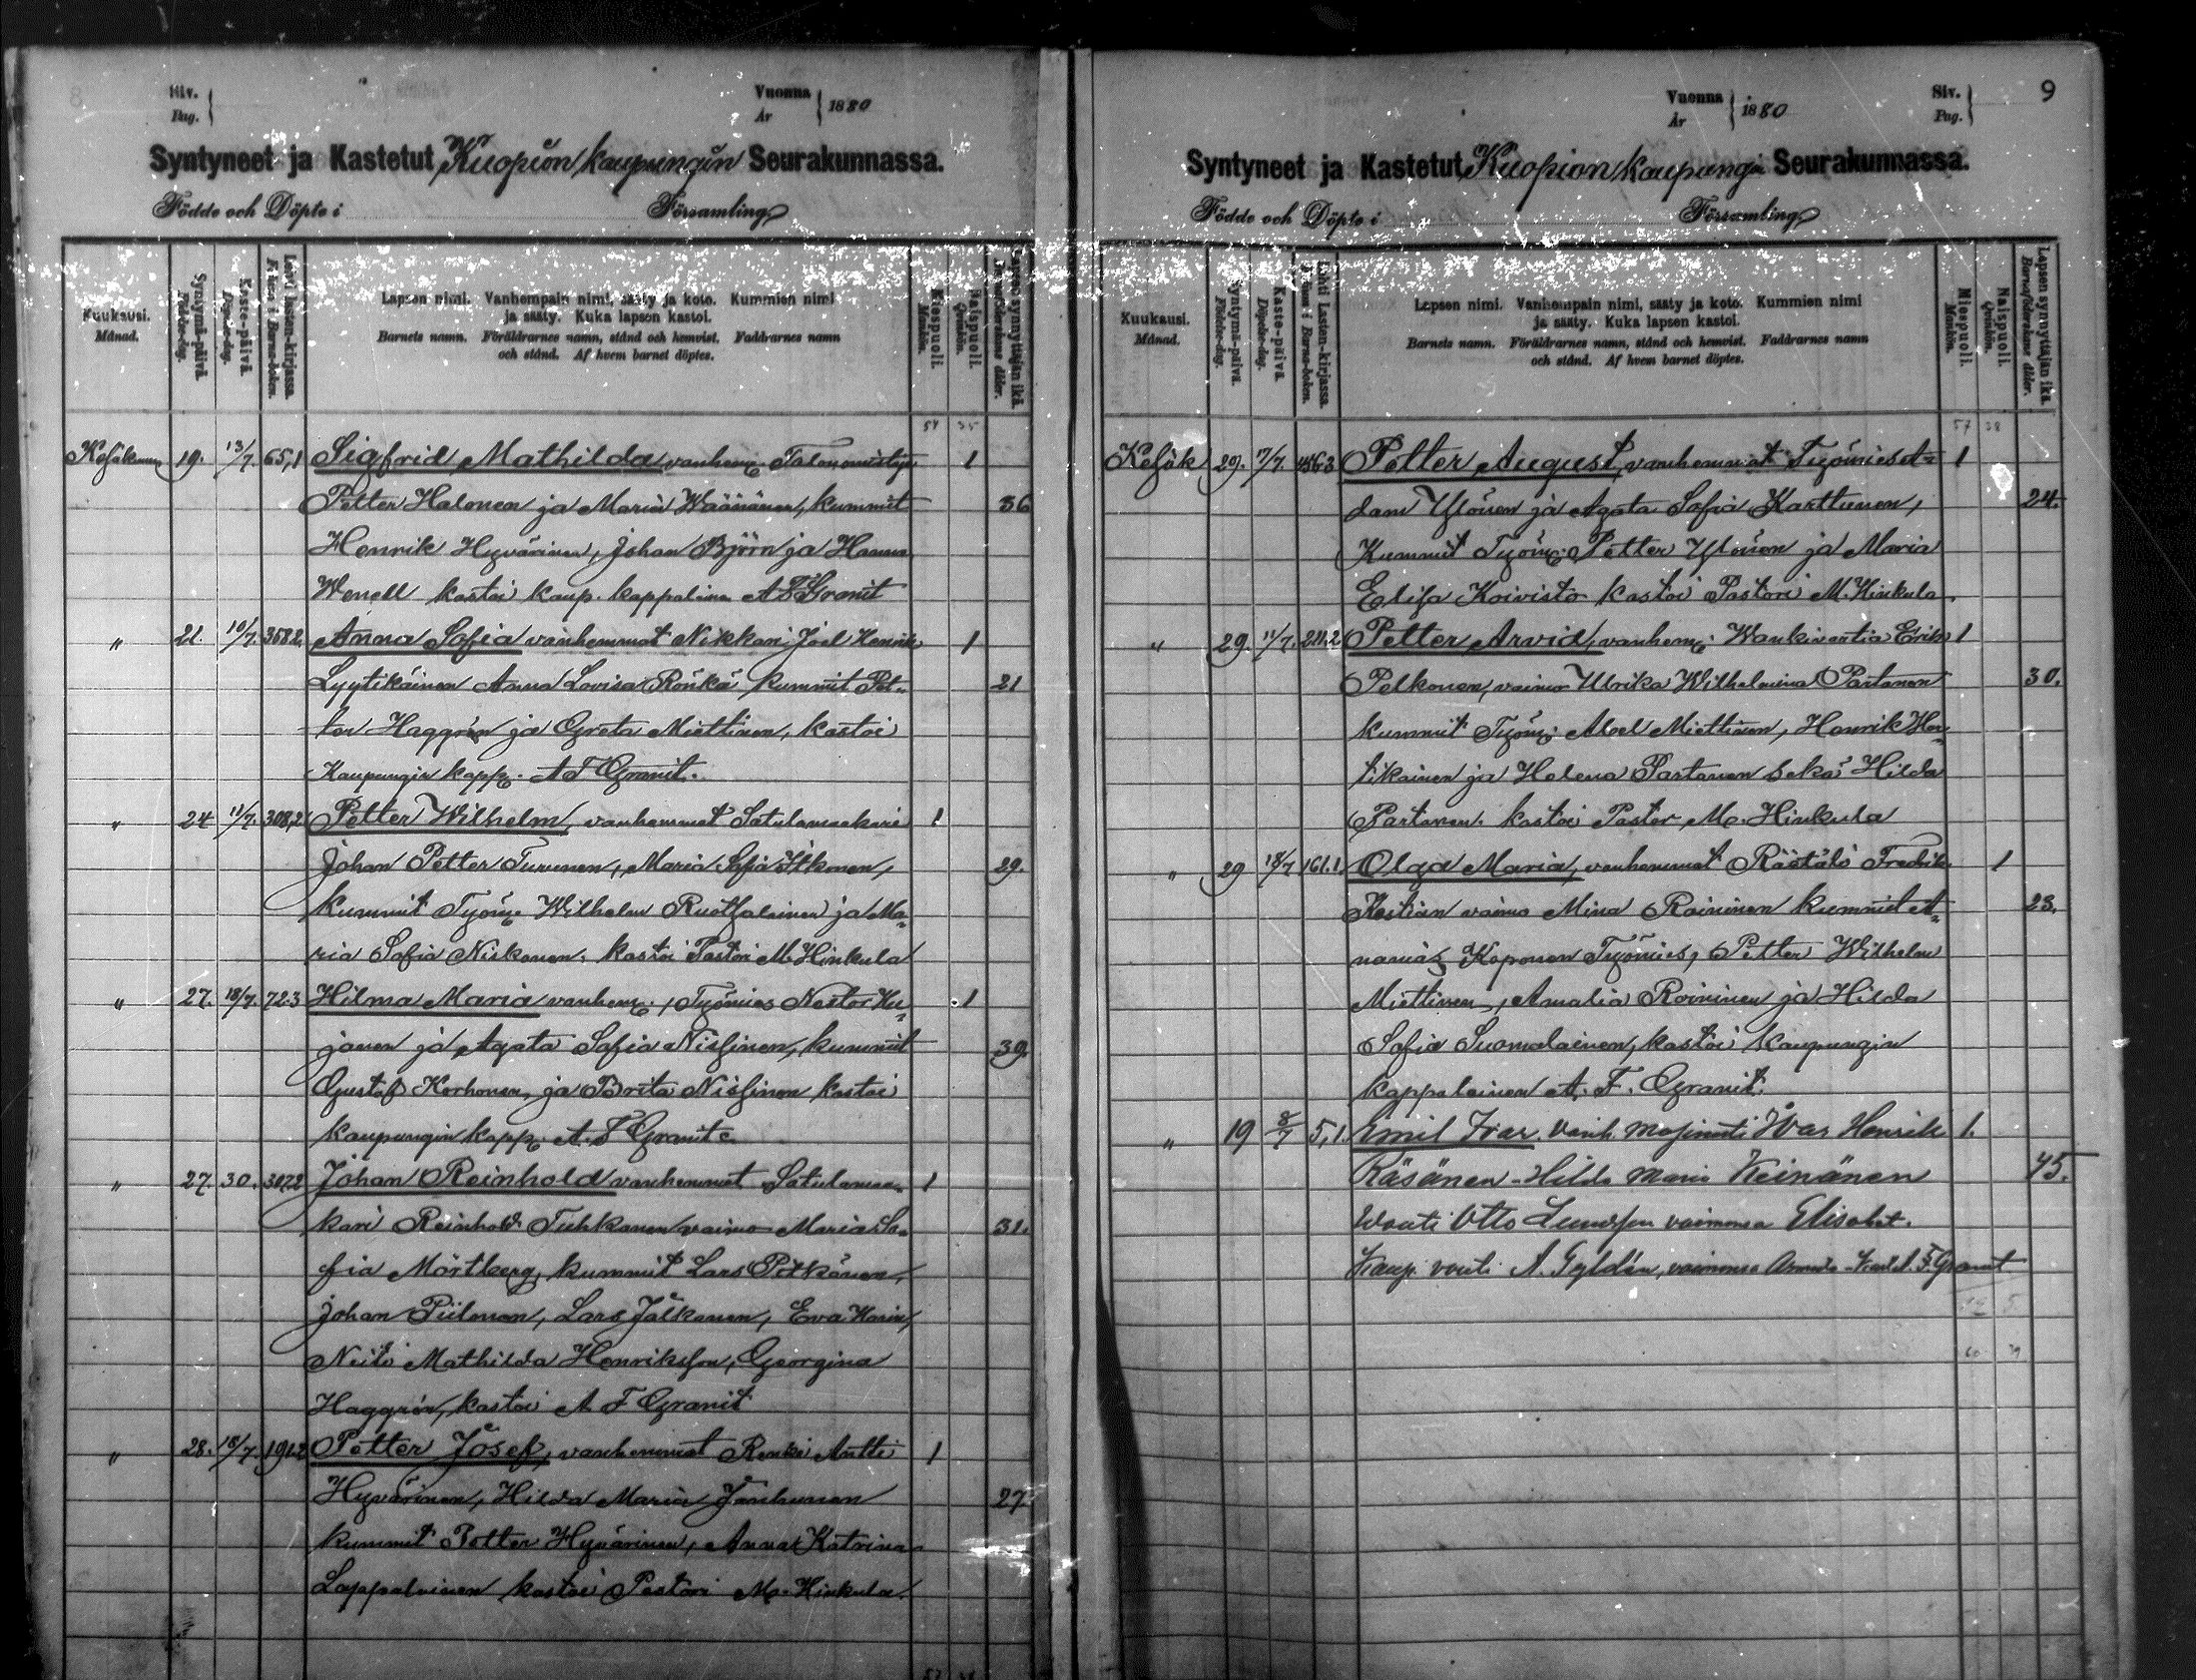 Siv.
Pag.
Vuonna
År
1880
Syntyneet ja Kastetut Kuopion kaupungin Seurakunnassa.
Födde och Döpte i Församling
Kuukausi.
Månad.
Syntymä-päivä.
Födelse-dag.
Kaste-päivä.
Döpelse-dag.
Lehti lasten-kirjassa.
Lapsen nimi. Vanhempain nimi, sääty ja koto. Kummien nimi
ja sääty. Kuka lapsen kastoi.
Barnets namn. Föräldrarnes namn, stånd och hemvist. Faddrarnes namn
och stånd. Af hvem barnet döptes.
Miespuoli.
Mankön.
Naispuoli.
Qvinkön.
Lapsen synnyttäjän ikä.
Barnaföderskans ålder.
19. 13/7. 65,1 Sigfrid Mathilda vanhem. 1
Petter Halonen ja Maria Wäänänen, kummit 36
Henrik Hyvärinen, Johan Björn ja Hanna
Wenell kastoi kaup. kappalainen A F Granit
" 21. 10/7. 358.2. Anna Sofia vanhemmat Nikkari Joel Henrik 1
Lyytikäinen Anna Lovisa Rönkä kummit Pet- 21
ter Haggrén ja Greta Miettinen, kastoi
Kaupungin kapp. A F Granit.
" 24 11/7. 308,2 Petter Wilhelm, vanhemmat Satulamaakari 1
Johan Petter Turunen, Maria Sofia Itkonen, 29.
kummit Työm. Wilhelm Ruotsalainen ja Ma-
ria Sofia Niskanen. kastoi Pastori M. Hinkula
" 27. 18/7. 72.3 Hilma Maria vanhem., Työmies Nestor Ku- 1
janen ja Agata Sofia Nissinen, kummit 39.
Gustaf Korhonen, ja Brita Nissinen kastoi
kaupungin kapp. A. F Granit
" 27. 30. 307.2 Johan Reinhold vanhemmat Satulamaa- 1
kari Reinhold Tuhkanen vaimo Maria So- 31.
fia Mörtberg, kummit Lars Pitkänen,
Johan Piilonen, Lars Jalkanen, Eva Karin,
Neiti Mathilda Henriksson, Georgina
Haggrén, kastoi A F Granit
" 28. 18/7. 191.2 Petter Josef, vanhemmat Renki Antti 1
Hyvärinen, Hilda Maria Janhunen 27.
kummit Petter Hyvärinen, Anna Katrina
Lappalainen kastoi Pastori M. Hinkula.
Vuonna
År
1880
Siv.
Pag.
9
Syntyneet ja Kastetut Kuopion kaupungi Seurakunnassa.
Födde och Döpte i Församling
Kuukausi.
Månad.
Syntymä-päivä.
Födelse-dag.
Kaste-päivä.
Döpelse-dag.
Lehti Lasten-kirjassa.
Lapsen nimi. Vanhempain nimi, sääty ja koto. Kummien nimi
ja sääty. Kuka lapsen kastoi.
Barnets namn. Föräldrarnes namn, stånd och hemvist. Faddrarnes namn
och stånd. Af hvem barnet döptes.
Miespuoli.
Mankön.
Naispuoli.
Qvinkön.
Lapsen synnyttäjän ikä.
Barnaföderskans ålder.
57 38
Kesäk 29. 7/7. Petter August, vanhemmat Työmies A- 1
dam Ylönen ja Agata Sofia Karttunen, 24.
Kummit Työm. Petter Ylönen ja Maria
Elisa Koivisto kastoi Pastori M. Hinkula.
" 29. 11/7. 211,2 Petter Arvid, vanhem. Wankivartia Erik 1
Pelkonen, vaimo Ulrika Wilhelmina Partanen 30.
kummit Työm. Abel Miettinen, Henrik Har-
tikainen ja Helena Partanen sekä Hilda
Partanen. kastoi Pastor M. Hinkula
" 29 18/7 161.1. Olga Maria, vanhemmat Räätäli Fredrik 1
vaimo Mina Roininen kummit A- 23.
nanias Koponen Työmies, Petter Wilhelm
Miettinen, Amalia Roininen ja Hilda
Sofia Suomalainen, kastoi Kaupungin
kappalainen A. F. Granit.
" 19 8/7 5,1. Emil Ivar. vanh. Masinisti Ivar Henrik 1.
Räsänen - Hilda Maria Keinänen 45.
Wouti Otto vaimonsa Elisabet.
Kaup. vouti A. Gyldén, vaimonsa A. F. Granit